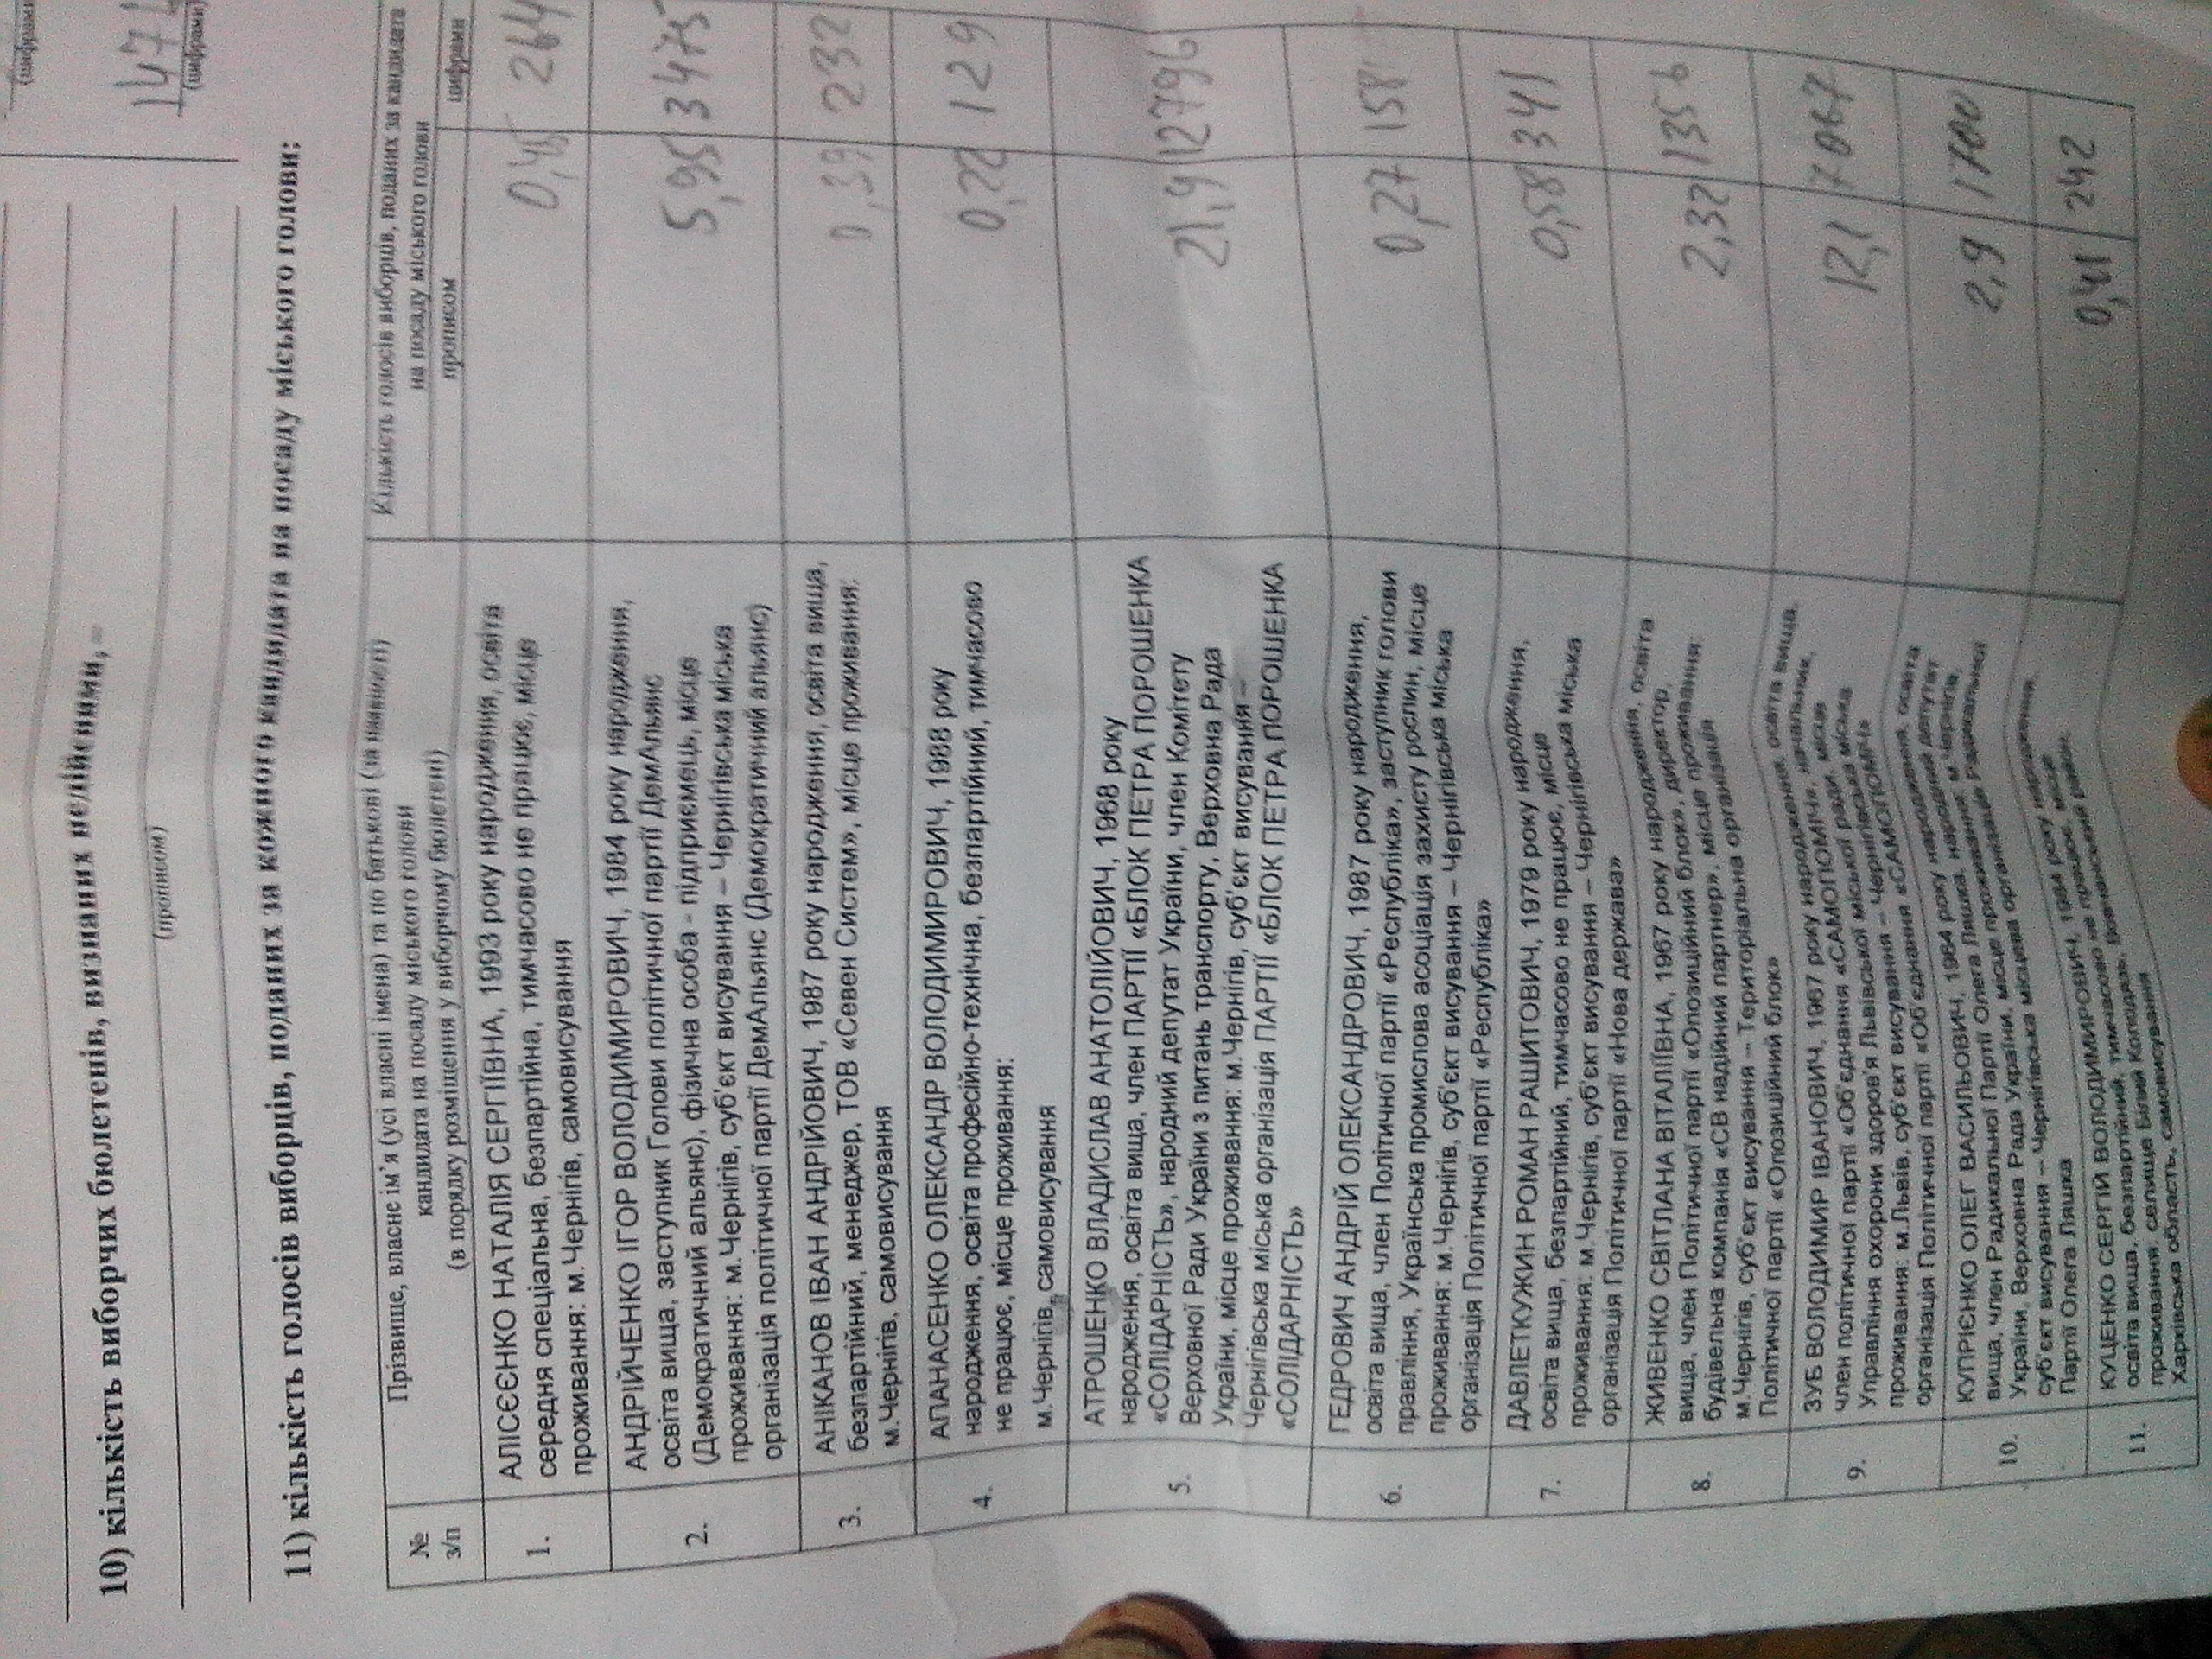 (цифрами)
10) кількість виборчих бюлетенів, визнаних недійсними, –
1471
(прописом)
(цифрами)
11) кількість голосів виборців, поданих за кожного кандидата на посаду міського голови:
№ з/п
Прізвище, власне ім’я (усі власні імена) та по батькові (за наявності)
кандидата на посаду міського голови
(в порядку розміщення у виборчому бюлетені)
Кількість голосів виборців, поданих за кандидата
на посаду міського голови
прописом
цифрами
1.
АЛІСЄЄНКО НАТАЛІЯ СЕРГІЇВНА, 1993 року народження, освіта
середня спеціальна, безпартійна, тимчасово не працює, місце
проживання: м.Чернігів, самовисування
0,45 264
2.
АНДРІЙЧЕНКО ІГОР ВОЛОДИМИРОВИЧ, 1984 року народження,
освіта вища, заступник Голови політичної партії ДемАльянс
(Демократичний альянс), фізична особа - підприємець, місце
проживання: м.Чернігів, суб'єкт висування – Чернігівська міська
організація політичної партії ДемАльянс (Демократичний альянс)
5,95 3475
3.
АНІКАНОВ ІВАН АНДРІЙОВИЧ, 1987 року народження, освіта вища,
безпартійний, менеджер, ТОВ «Севен Систем», місце проживання:
м.Чернігів, самовисування
0,39 232
4.
АПАНАСЕНКО ОЛЕКСАНДР ВОЛОДИМИРОВИЧ, 1988 року
народження, освіта професійно-технічна, безпартійний, тимчасово
не працює, місце проживання:
м.Чернігів, самовисування
0,22 129
5.
АТРОШЕНКО ВЛАДИСЛАВ АНАТОЛІЙОВИЧ, 1968 року
народження, освіта вища, член ПАРТІЇ «БЛОК ПЕТРА ПОРОШЕНКА
«СОЛІДАРНІСТЬ», народний депутат України, член Комітету
Верховної Ради України з питань транспорту, Верховна Рада
України, місце проживання: м.Чернігів, суб'єкт висування –
Чернігівська міська організація ПАРТІЇ «БЛОК ПЕТРА ПОРОШЕНКА
«СОЛІДАРНІСТЬ»
21,9 12796
6.
ГЕДРОВИЧ АНДРІЙ ОЛЕКСАНДРОВИЧ, 1987 року народження,
освіта вища, член Політичної партії «Республіка», заступник голови
правління, Українська промислова асоціація захисту рослин, місце
проживання: м.Чернігів, суб'єкт висування – Чернігівська міська
організація Політичної партії «Республіка»
0,27 158
7.
ДАВЛЕТКУЖИН РОМАН РАШИТОВИЧ, 1979 року народження,
освіта вища, безпартійний, тимчасово не працює, місце
проживання: м.Чернігів, суб'єкт висування – Чернігівська міська
організація Політичної партії «Нова держава»
0,58 341
8.
ЖИВЕНКО СВІТЛАНА ВІТАЛІЇВНА, 1967 року народження, освіта
вища, член Політичної партії «Опозиційний блок», директор,
будівельна компанія «СВ надійний партнер», місце проживання:
м.Чернігів, суб'єкт висування – Територіальна організація
Політичної партії «Опозиційний блок»
2,32 1356
9.
ЗУБ ВОЛОДИМИР ІВАНОВИЧ, 1967 року народження, освіта вища,
член політичної партії «Об'єднання «САМОПОМІЧ», начальник,
Управління охорони здоров'я Львівської міської ради, місце
проживання: м.Львів, суб'єкт висування – Чернігівська міська
організація Політичної партії «Об'єднання «САМОПОМІЧ»
12,1 7067
10.
КУПРІЄНКО ОЛЕГ ВАСИЛЬОВИЧ, 1964 року народження, освіта
вища, член Радикальної Партії Олега Ляшка, народний депутат
України, Верховна Рада України, місце проживання: м.Чернігів,
суб'єкт висування – Чернігівська місцева організація Радикальної
Партії Олега Ляшка
2,9 1700
11.
КУЦЕНКО СЕРГІЙ ВОЛОДИМИРОВИЧ, 1984 року народження,
освіта вища, безпартійний, тимчасово не працює, місце
проживання: селище Білий Колодязь, Вовчанський район,
Харківська область, самовисування
0,41 242